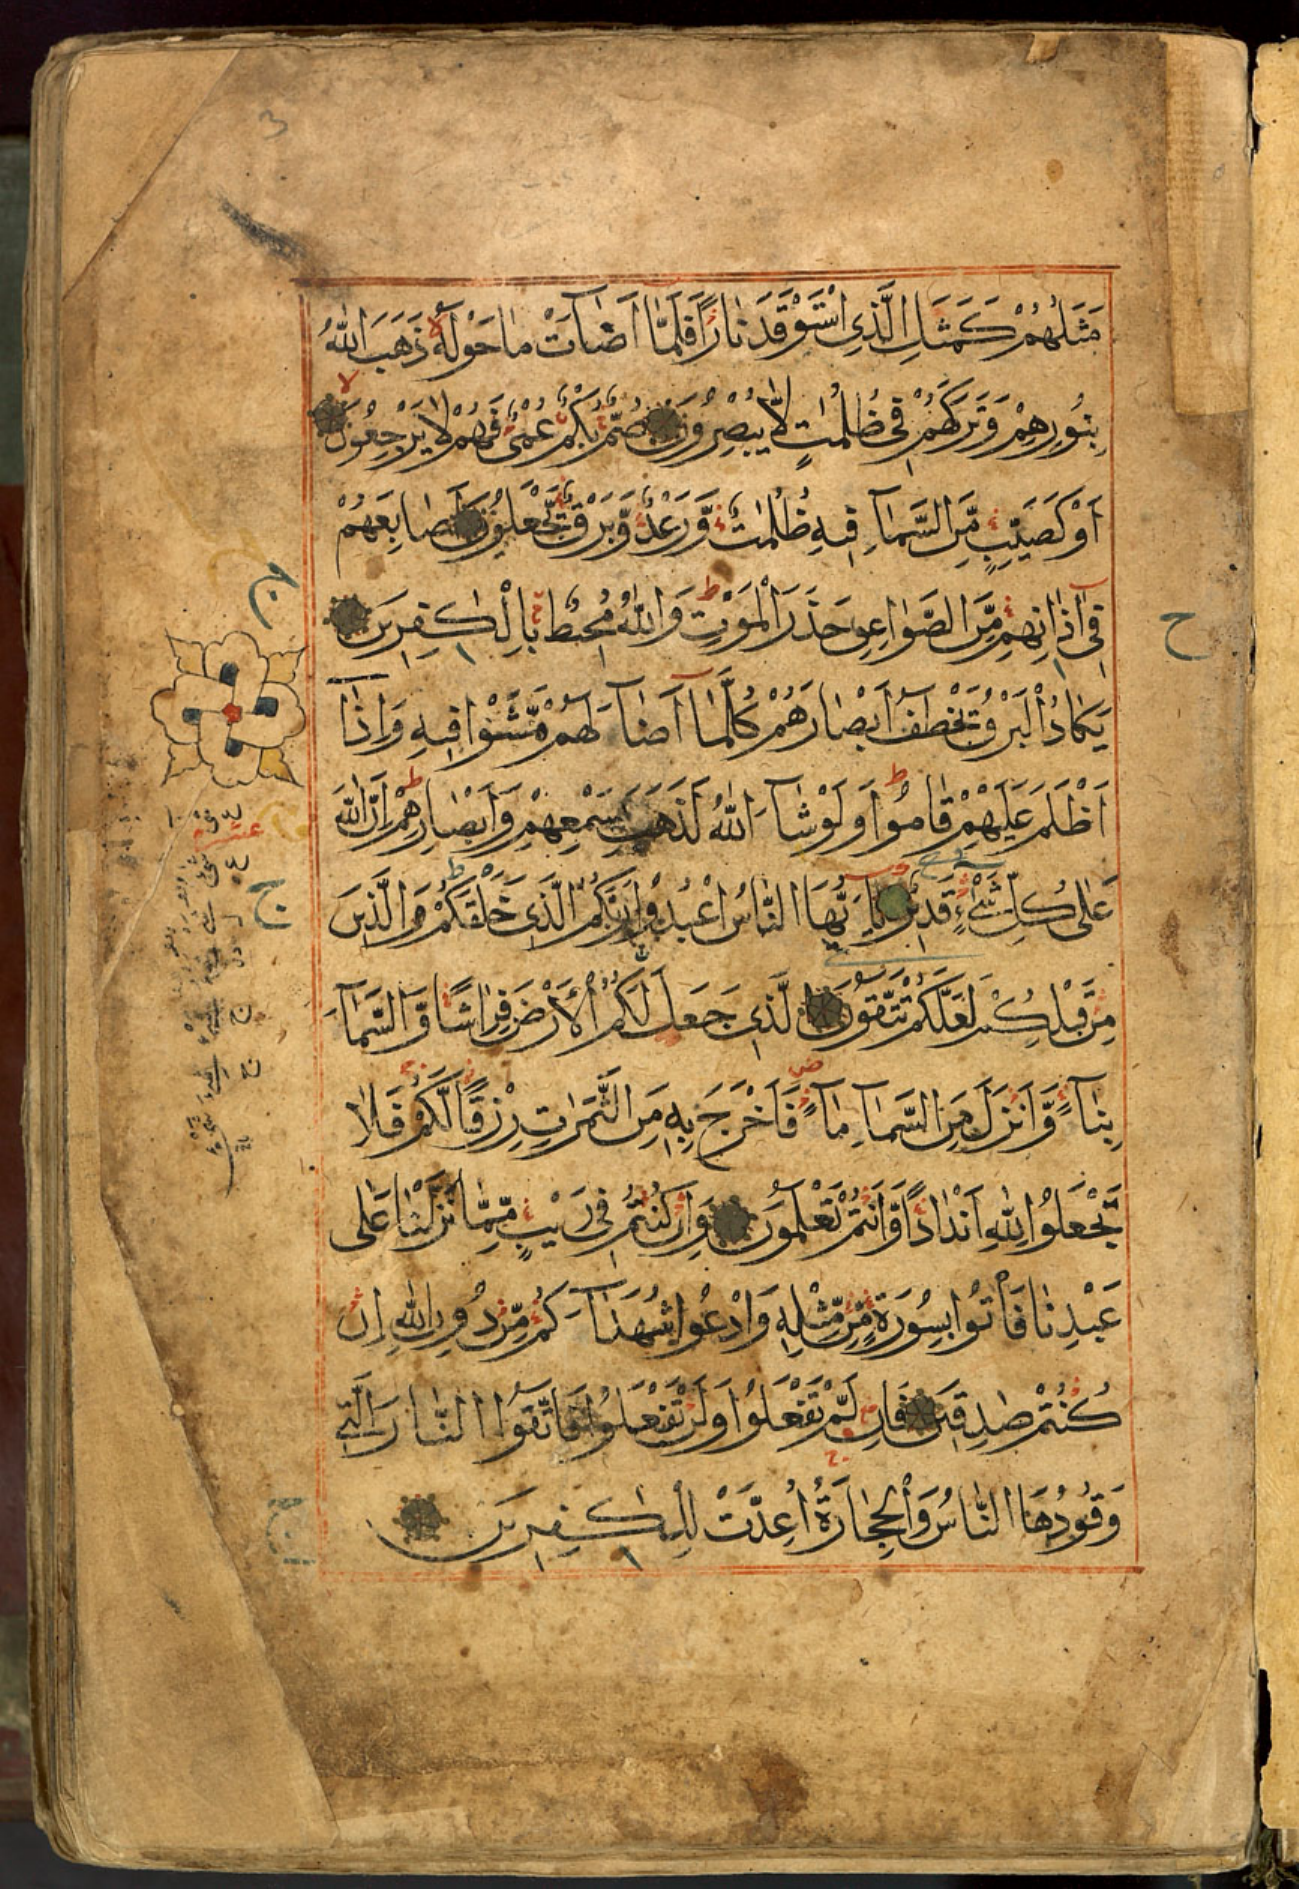 مَثَلُهُمْ كَمَثَلِ الَّذِى اسْتَوْقَدَ نَارًا فَلَمَّا اَضَاۤءَتْ مَا حَوْلَهُ ذَهَبَ اللهُ
بِنُورِهِمْ وَتَرَكَهُمْ فِى ظُلُمٰتٍ لَا يُبْصِرُونَ صُمٌّ بُكْمٌ عُمْىٌ فَهُمْ لَا يَرْجِعُونَ
اَوْ كَصَيِّبٍ مِّنَ السَّمَاۤءِ فِيهِ ظُلُمٰتٌ وَّرَعْدٌ وَّبَرْقٌ يَّجْعَلُونَ اَصَابِعَهُمْ
فِى اٰذَانِهِمْ مِّنَ الصَّوَاعِقِ حَذَرَ الْمَوْتِ وَاللهُ مُحِيطٌ بِالْكٰفِرِينَ
يَكَادُ الْبَرْقُ يَخْطَفُ اَبْصَارَهُمْ كُلَّمَا اَضَاۤءَ لَهُمْ مَّشَوْا فِيهِ وَاِذَا
اَظْلَمَ عَلَيْهِمْ قَامُوا وَلَوْ شَاۤءَ اللهُ لَذَهَبَ بِسَمْعِهِمْ وَاَبْصَارِهِمْ اِنَّ اللهَ
عَلٰى كُلِّ شَىْءٍ قَدِيرٌ يَا اَيُّهَا النَّاسُ اعْبُدُوا رَبَّكُمُ الَّذِى خَلَقَكُمْ وَالَّذِينَ
مِنْ قَبْلِكُمْ لَعَلَّكُمْ تَتَّقُونَ الَّذِى جَعَلَ لَكُمُ الْاَرْضَ فِرَاشًا وَّالسَّمَاۤءَ
بِنَاۤءً وَّاَنْزَلَ مِنَ السَّمَاۤءِ مَاۤءً فَاَخْرَجَ بِهِ مِنَ الثَّمَرٰتِ رِزْقًا لَّكُمْ فَلَا
تَجْعَلُوا لِلّٰهِ اَنْدَادًا وَّاَنْتُمْ تَعْلَمُونَ وَاِنْ كُنْتُمْ فِى رَيْبٍ مِّمَّا نَزَّلْنَا عَلٰى
عَبْدِنَا فَأْتُوا بِسُورَةٍ مِّنْ مِّثْلِهِ وَادْعُوا شُهَدَاۤءَكُمْ مِّنْ دُونِ اللهِ اِنْ
كُنْتُمْ صٰدِقِينَ فَاِنْ لَّمْ تَفْعَلُوا وَلَنْ تَفْعَلُوا فَاتَّقُوا النَّارَ الَّتِى
وَقُودُهَا النَّاسُ وَالْحِجَارَةُ اُعِدَّتْ لِلْكٰفِرِينَ